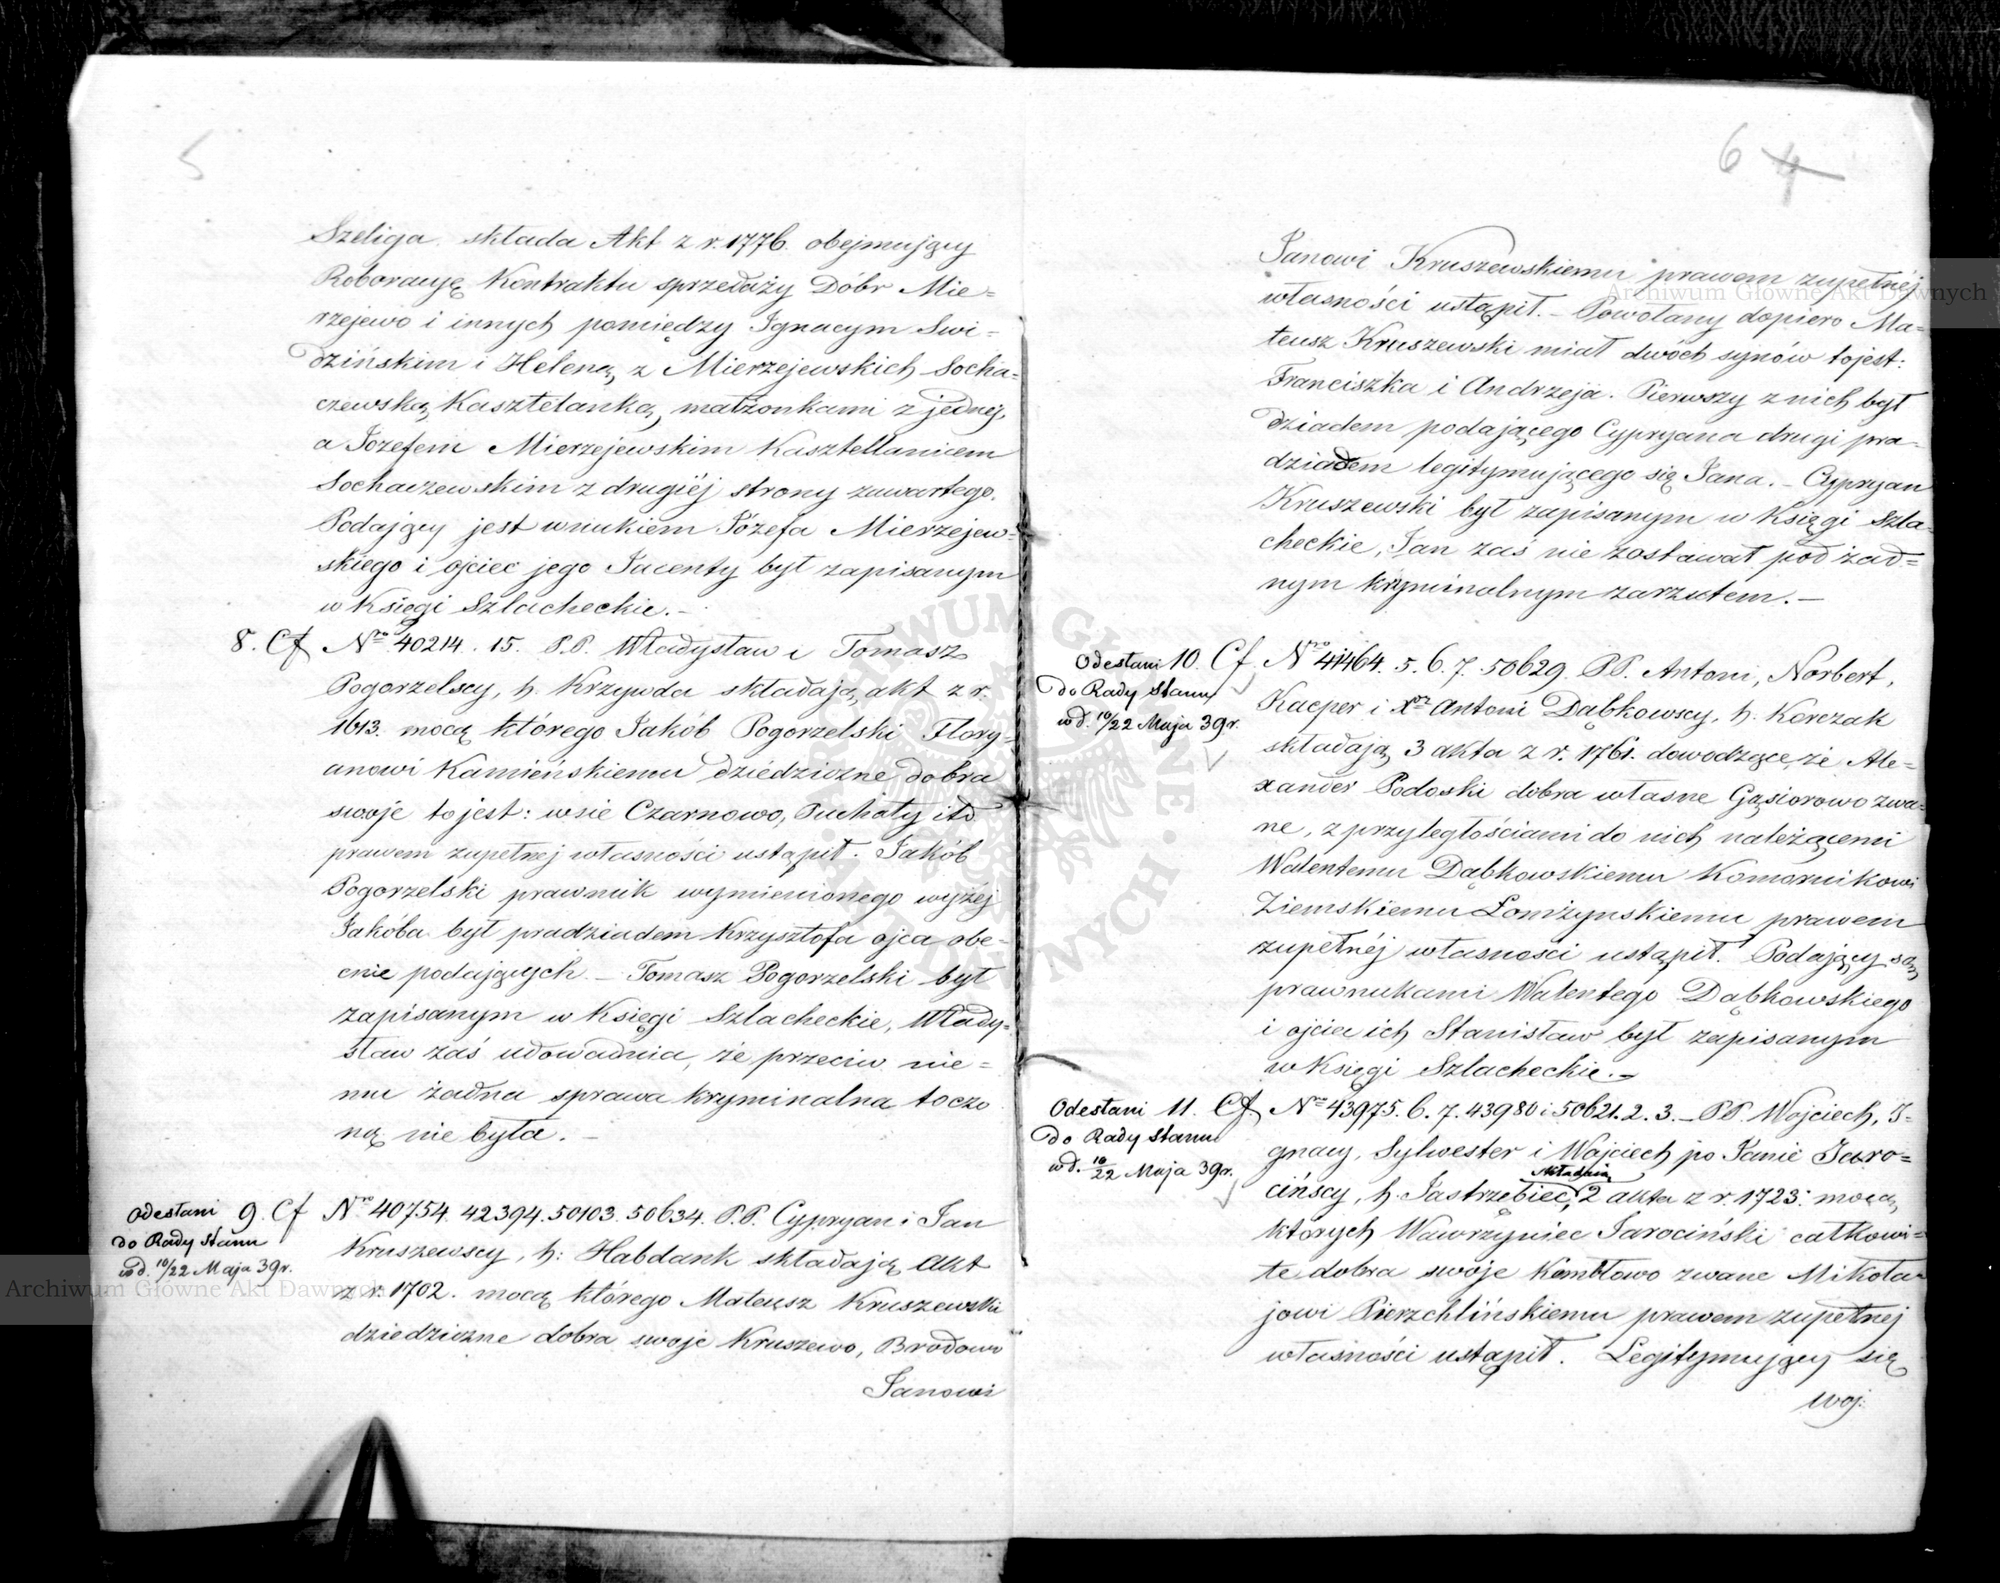 5
Szeliga składa Akt z r. 1776. obejmujący
Roboracyę Kontraktu sprzedaży Dóbr Mie=
rzejewo i innych pomiędzy Ignacym Swi=
dzińskim i Heleną z Mierzejewskich Socha=
czewską Kasztelanką, małżonkami z jednej,
a Jozefem Mierzejewskim Kasztellanicem
Sochaczewskim z drugiéj strony zawartego.
Podający jest wnukiem Józefa Mierzejew=
skiego i ojciec jego Jacenty był zapisanym
w Księgi Szlacheckie.–
8. Cf Nro 40214. 15. P.P. Władysław i Tomasz
Pogorzelscy, h. Krzywda składają, akt z r.
1613. mocą którego Jakób Pogorzelski Flory-
anowi Kamieńskiemu dziedziczne dobra
swoje to jest: wsie Czarnowo, Puchały itd
prawem zupełnej własności ustąpił. Jakób
Pogorzelski prawnuk wymienionego wyżéj
Jakóba był pradziadem Krzysztofa ojca obe-
cnie podających. – Tomasz Pogorzelski był
zapisanym w Księgi Szlacheckie, Włady=
sław zaś udowadnia, że przeciw nie=
mu żadna sprawa kryminalna toczo
ną nie była. –
Odesłani
do Rady Stanu
w d. 10/22 Maja 39 r.
9. Cf Nro 40754. 42394. 50103. 50634. P.P. Cypryan i Jan
Kruszewscy, h: Habdank składają Akt
z r. 1702. mocą którego Mateusz Kruszewski
dziedziczne dobra swoje Kruszewo, Brodowo
Janowi
6 4
Janowi Kruszewskiemu prawem zupełnéj
własności ustąpił. – Powołany dopiero Ma=
teusz Kruszewski miał dwóch synów to jest:
Franciszka i Andrzeja. Pierwszy z nich był
dziadem podającego Cypryana drugi pra-
dziadem legitymującego się Jana. – Cypryan
Kruszewski był zapisanym w Księgi Szla-
checkie, Jan zaś nie zostawał pod żad=
nym kryminalnym zarzutem. –
Odesłani
do Rady Stanu
w d. 10/22 Maja 39 r.
10. Cf Nro 41464. 5. 6. 7. 50629. P.P. Antoni, Norbert,
Kacper i Antoni Dąbkowscy, h. Korczak
składają 3 akta z r. 1761. dowodzące, że Ale=
xander Podoski dobra własne Gąsiorowo zwa=
ne, z przyległościami do nich należącemi
Walentemu Dąbkowskiemu Komornikowi
Ziemskiemu Łomżynskiemu prawem
zupełnéj własności ustąpił. Podający są
prawnukami Walentego Dąbkowskiego
i ojciec ich Stanisław był zapisanym
w Księgi Szlacheckie. –
Odesłani
do Rady Stanu
w d. 10/22 Maja 39 r.
11. Cf Nro 43975. 6. 7. 43980 i 50621. 2. 3. – P.P. Wojciech, I-
gnacy, Sylwester i Wojciech po Janie Jaro=
cińscy, h. Jastrzębiec, składają 2 akta z r. 1723: mocą
których Wawrzyniec Jarociński całkowi=
te dobra swoje Kembłowo zwane Mikoła-
jowi Pierzchlińskiemu prawem zupełnej
własności ustąpił. Legitymujący się
Woj:
Archiwum Główne Akt Dawnych
Archiwum Główne Akt Dawnych
ARCHIWUM GŁÓWNE AKT DAWNYCH